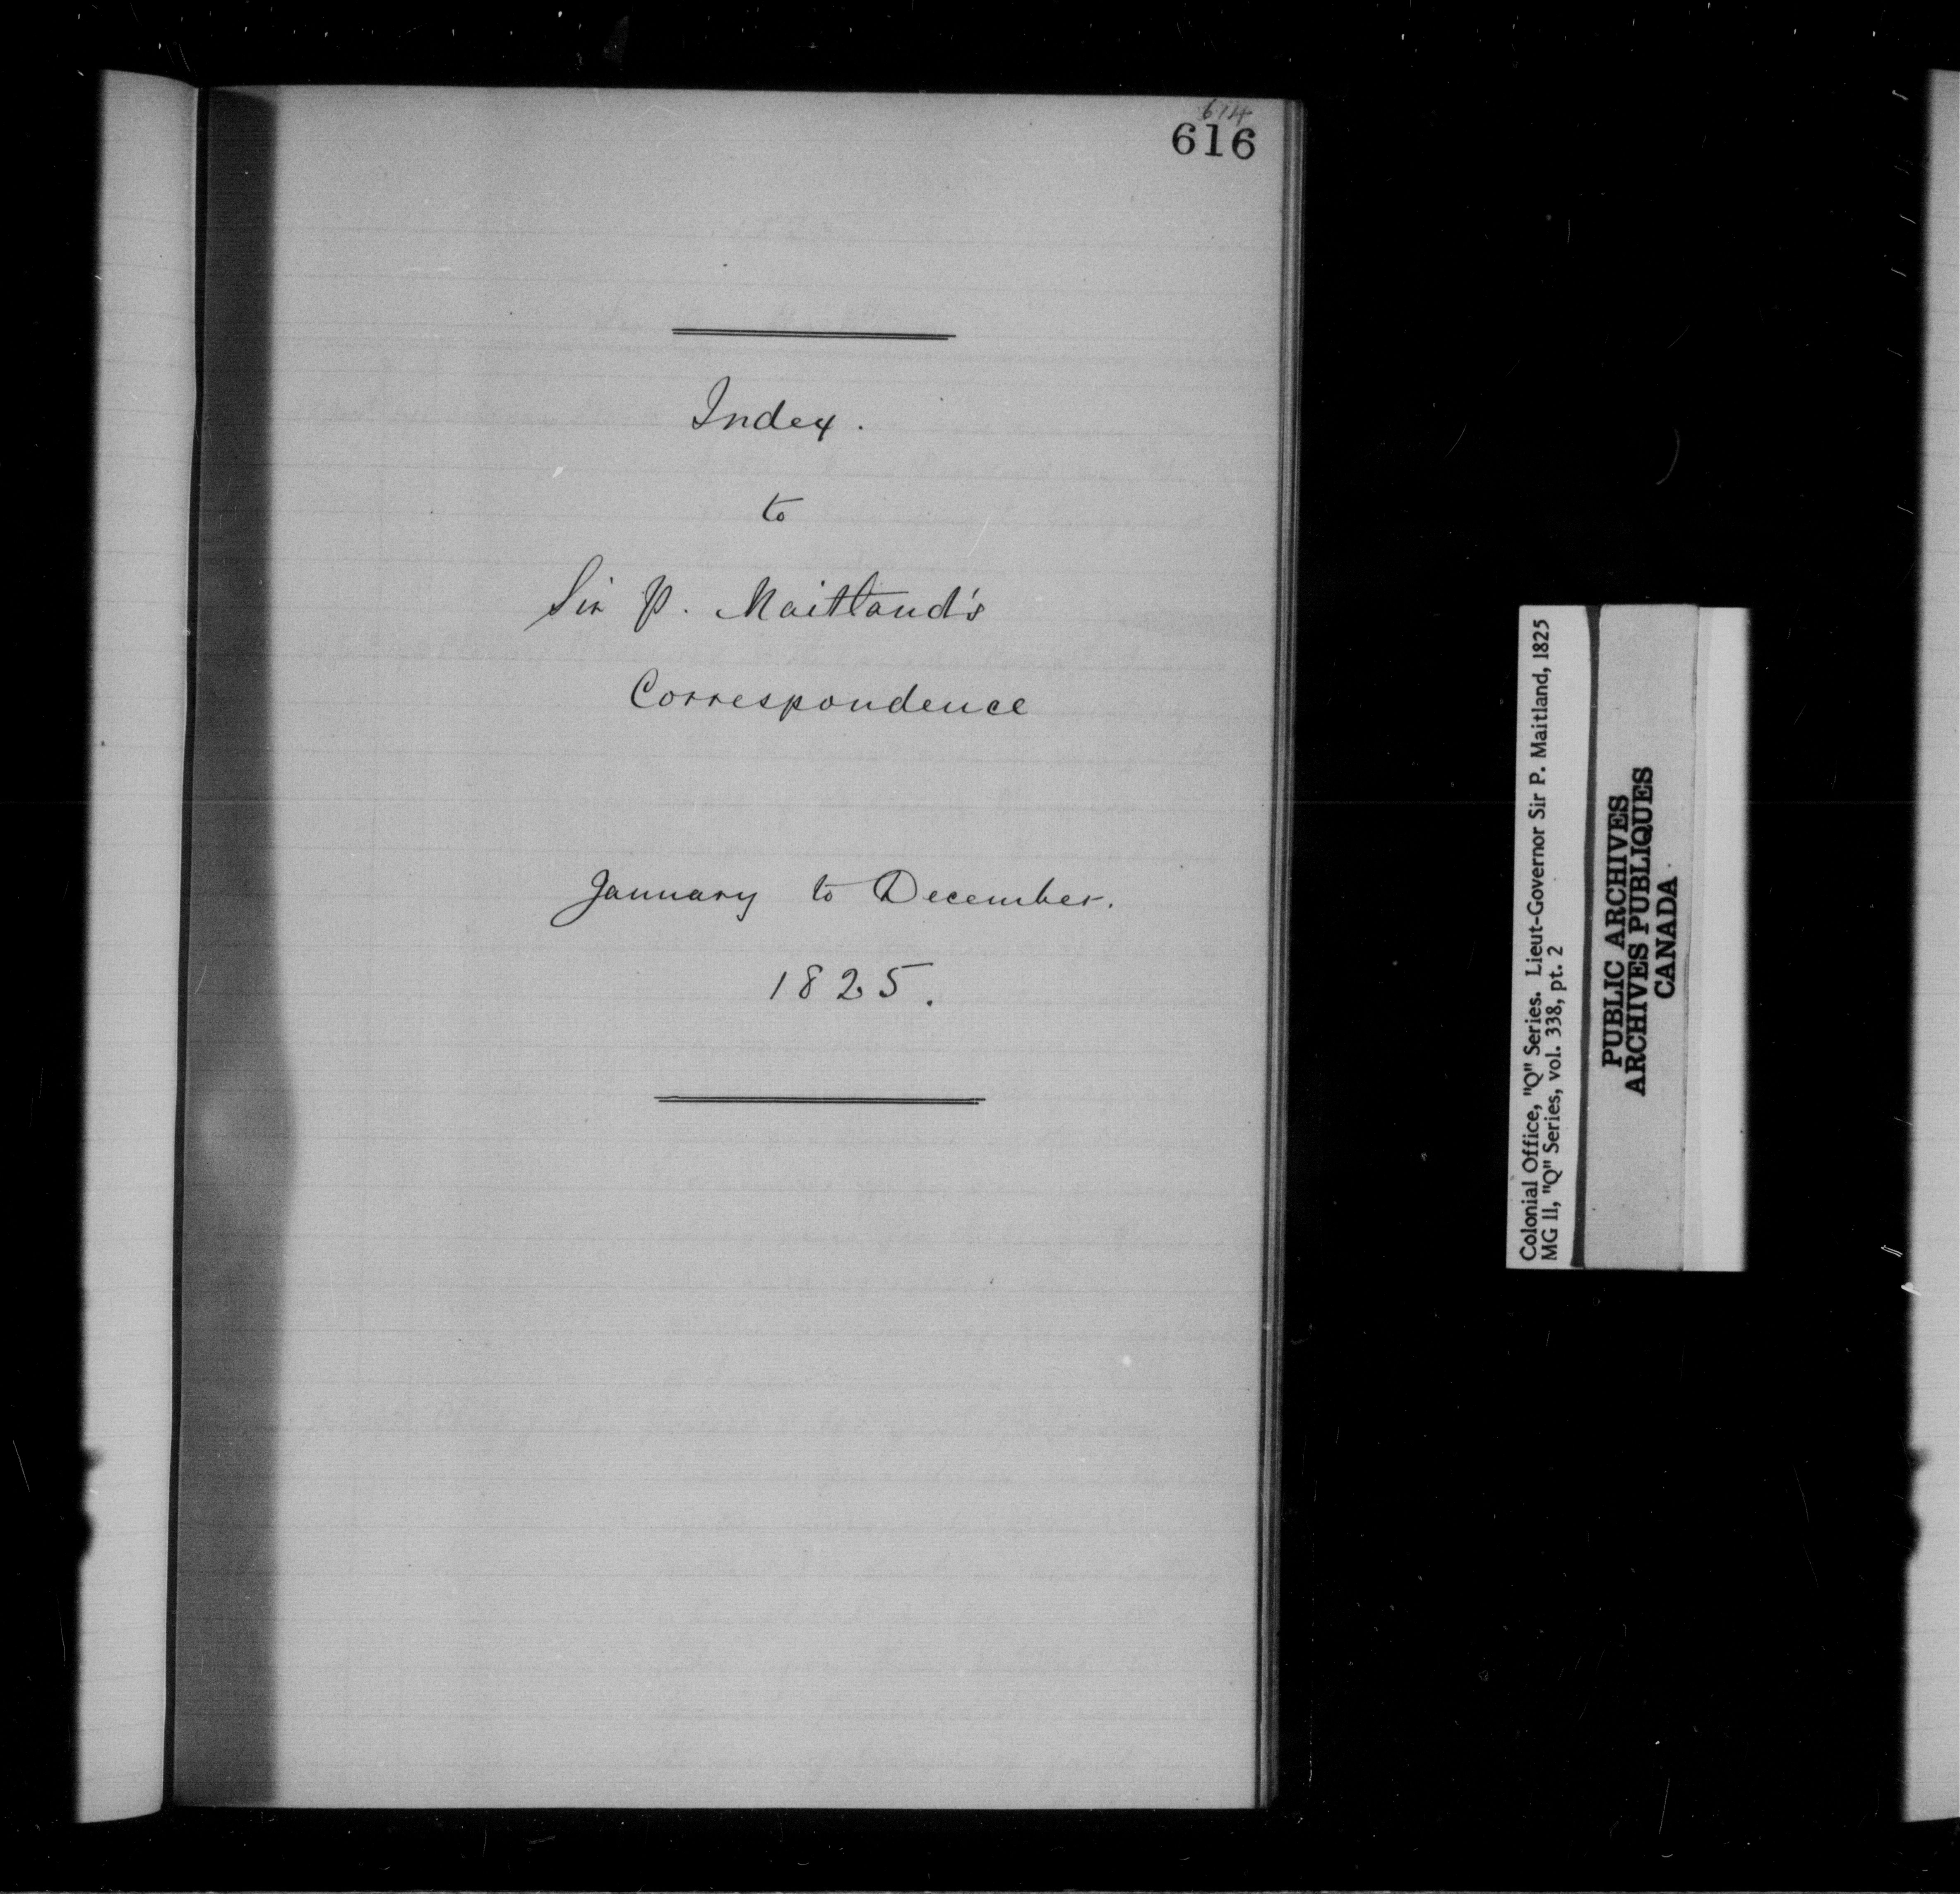 614
616
Index.
to
Sir P. Maitland's
Correspondence
January to December.
1825.
Colonial Office, "Q" Series. Lieut-Governor Sir P. Maitland, 1825
MG 11, "Q" Series, vol. 338, pt. 2
PUBLIC ARCHIVES
ARCHIVES PUBLIQUES
CANADA